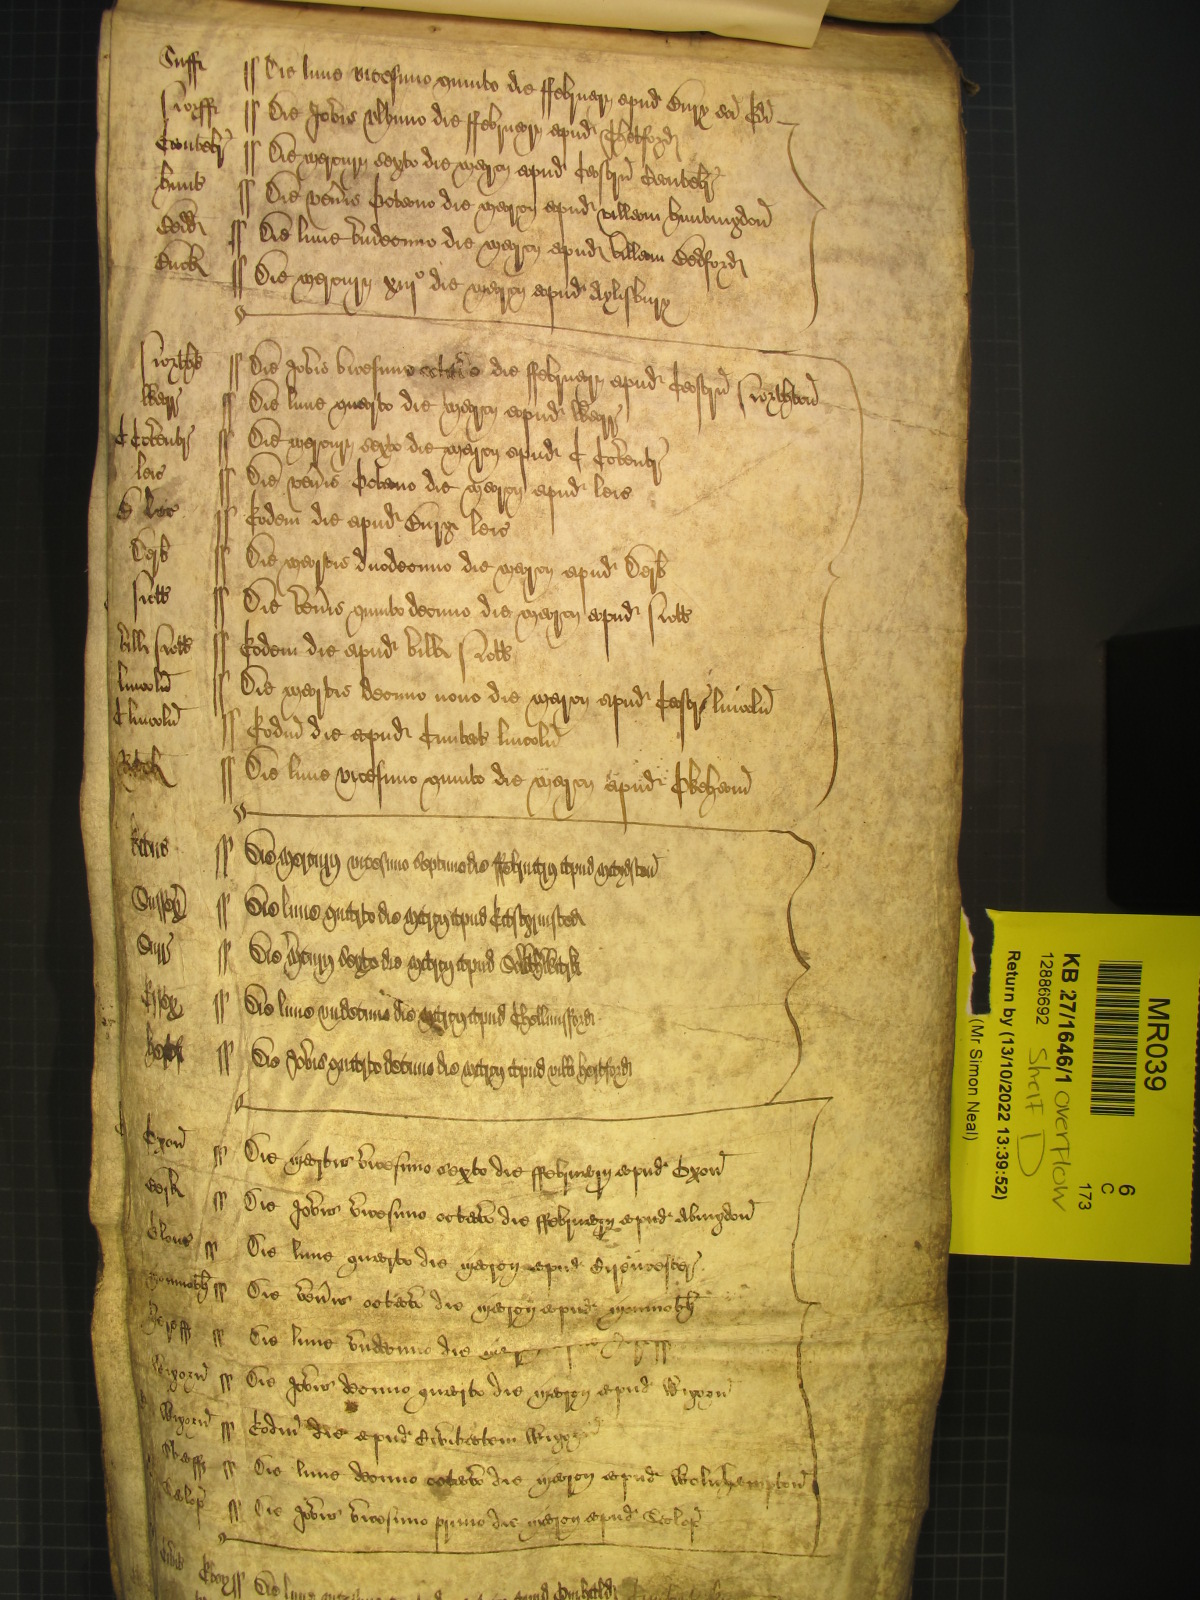 Suff ss Die lune vicesimo quinto die Februar apud Bury sci Ed
Norff ss Die Jovis ultimo die Februar apud Thetford
Cantebr ss Die mercur sexto die marcii apud Castr Cantebr
Hunt ss Die veneris octavo die marcii apud villam huntingdon
Bedd ss Die lune undecimo die marcii apud villam Bedford
Buck ss Die mercur xiii° die marcii apud Aylisbury
Northt ss Die Jovis vicesimo octavo die Februar apud Castr Northton
Warr ss Die lune quarto die marcii apud Warr
C Coventr ss Die mercur sexto die marcii apud C Coventr
leic ss Die veneris octavo die marcii apud leic
B leic ss Eodem die apud Burg leic
Derb ss Die martis duodecimo die marcii apud Derb
Nott ss Die veneris quinto decimo die marcii apud Nott
vill Nott ss Eodem die apud vill Nott
lincoln ss Die martis decimo nono die marcii apud Castr lincoln
C lincoln ss Eodem die apud Civitat lincoln
Rotel ss Die lune vicesimo quinto die marcii apud Okeham
Kanc ss Die mercur vicesimo septimo die Februar apud maydston
Sussex ss Die lune quarto die marcii apud Estgrinsted
Surr ss Die mercur sexto die marcii apud
Essex ss Die lune undecimo die marcii apud Chellmsford
Hertf ss Die Jovis quarto decimo die marcii apud vill hertford
Oxon ss Die martis vicesimo sexto die Februar apud Oxon
Berk ss Die Jovis vicesimo octavo die Februar apud Abingdon
Glouc ss Die lune quarto die marcii apud Cirencester
monmoth ss Die veneris octavo die marcii apud monmoth
Hereff ss Die lune undecimo die
Wigorn ss Die Jovis decimo quarto die marcii apud Wigorn
Wigorn ss Eodem die apud Civitatem Wigorn
Staff ss Die lune decimo octavo die marcii apud Wolulhampton
Salop ss Die Jovis vicesimo primo die marcii apud Salop
Civit Ebor ss Die lune
MR039
6
C
173
KB 27/1646/1 overflow
12886692 Shelf D
Return by (13/10/2022 13:39:52)
(Mr Simon Neal)